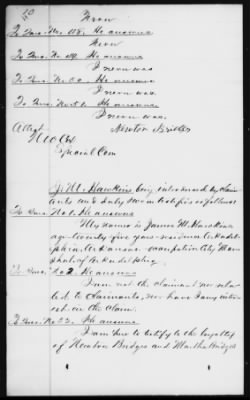 10
Neva
To Inter. No. 58. He answers
Never
To Inter. No. 59. He answers
I never was.
To Inter. No. 60. He answers
I never was.
To Inter. He answers
I never was.
Newton Bridges
Attest
Special Com
J. M. Hawkins being introduced by claim-
ants and duly sworn testifies as follows
To Inter. No 1. He answers
My name is James M. Hawkins
age twenty five years residence Arkadel-
phia, Arkansas - occupation City Mar-
shal of Arkadelphia.
To Inter. No 2. He answers
I am not the claimant nor rela-
ted to claimants, nor have I any inter-
est in the claim.
To Inter. No He answers
I am here to testify to the loyalty
of Newton Bridges and Martha Bridges